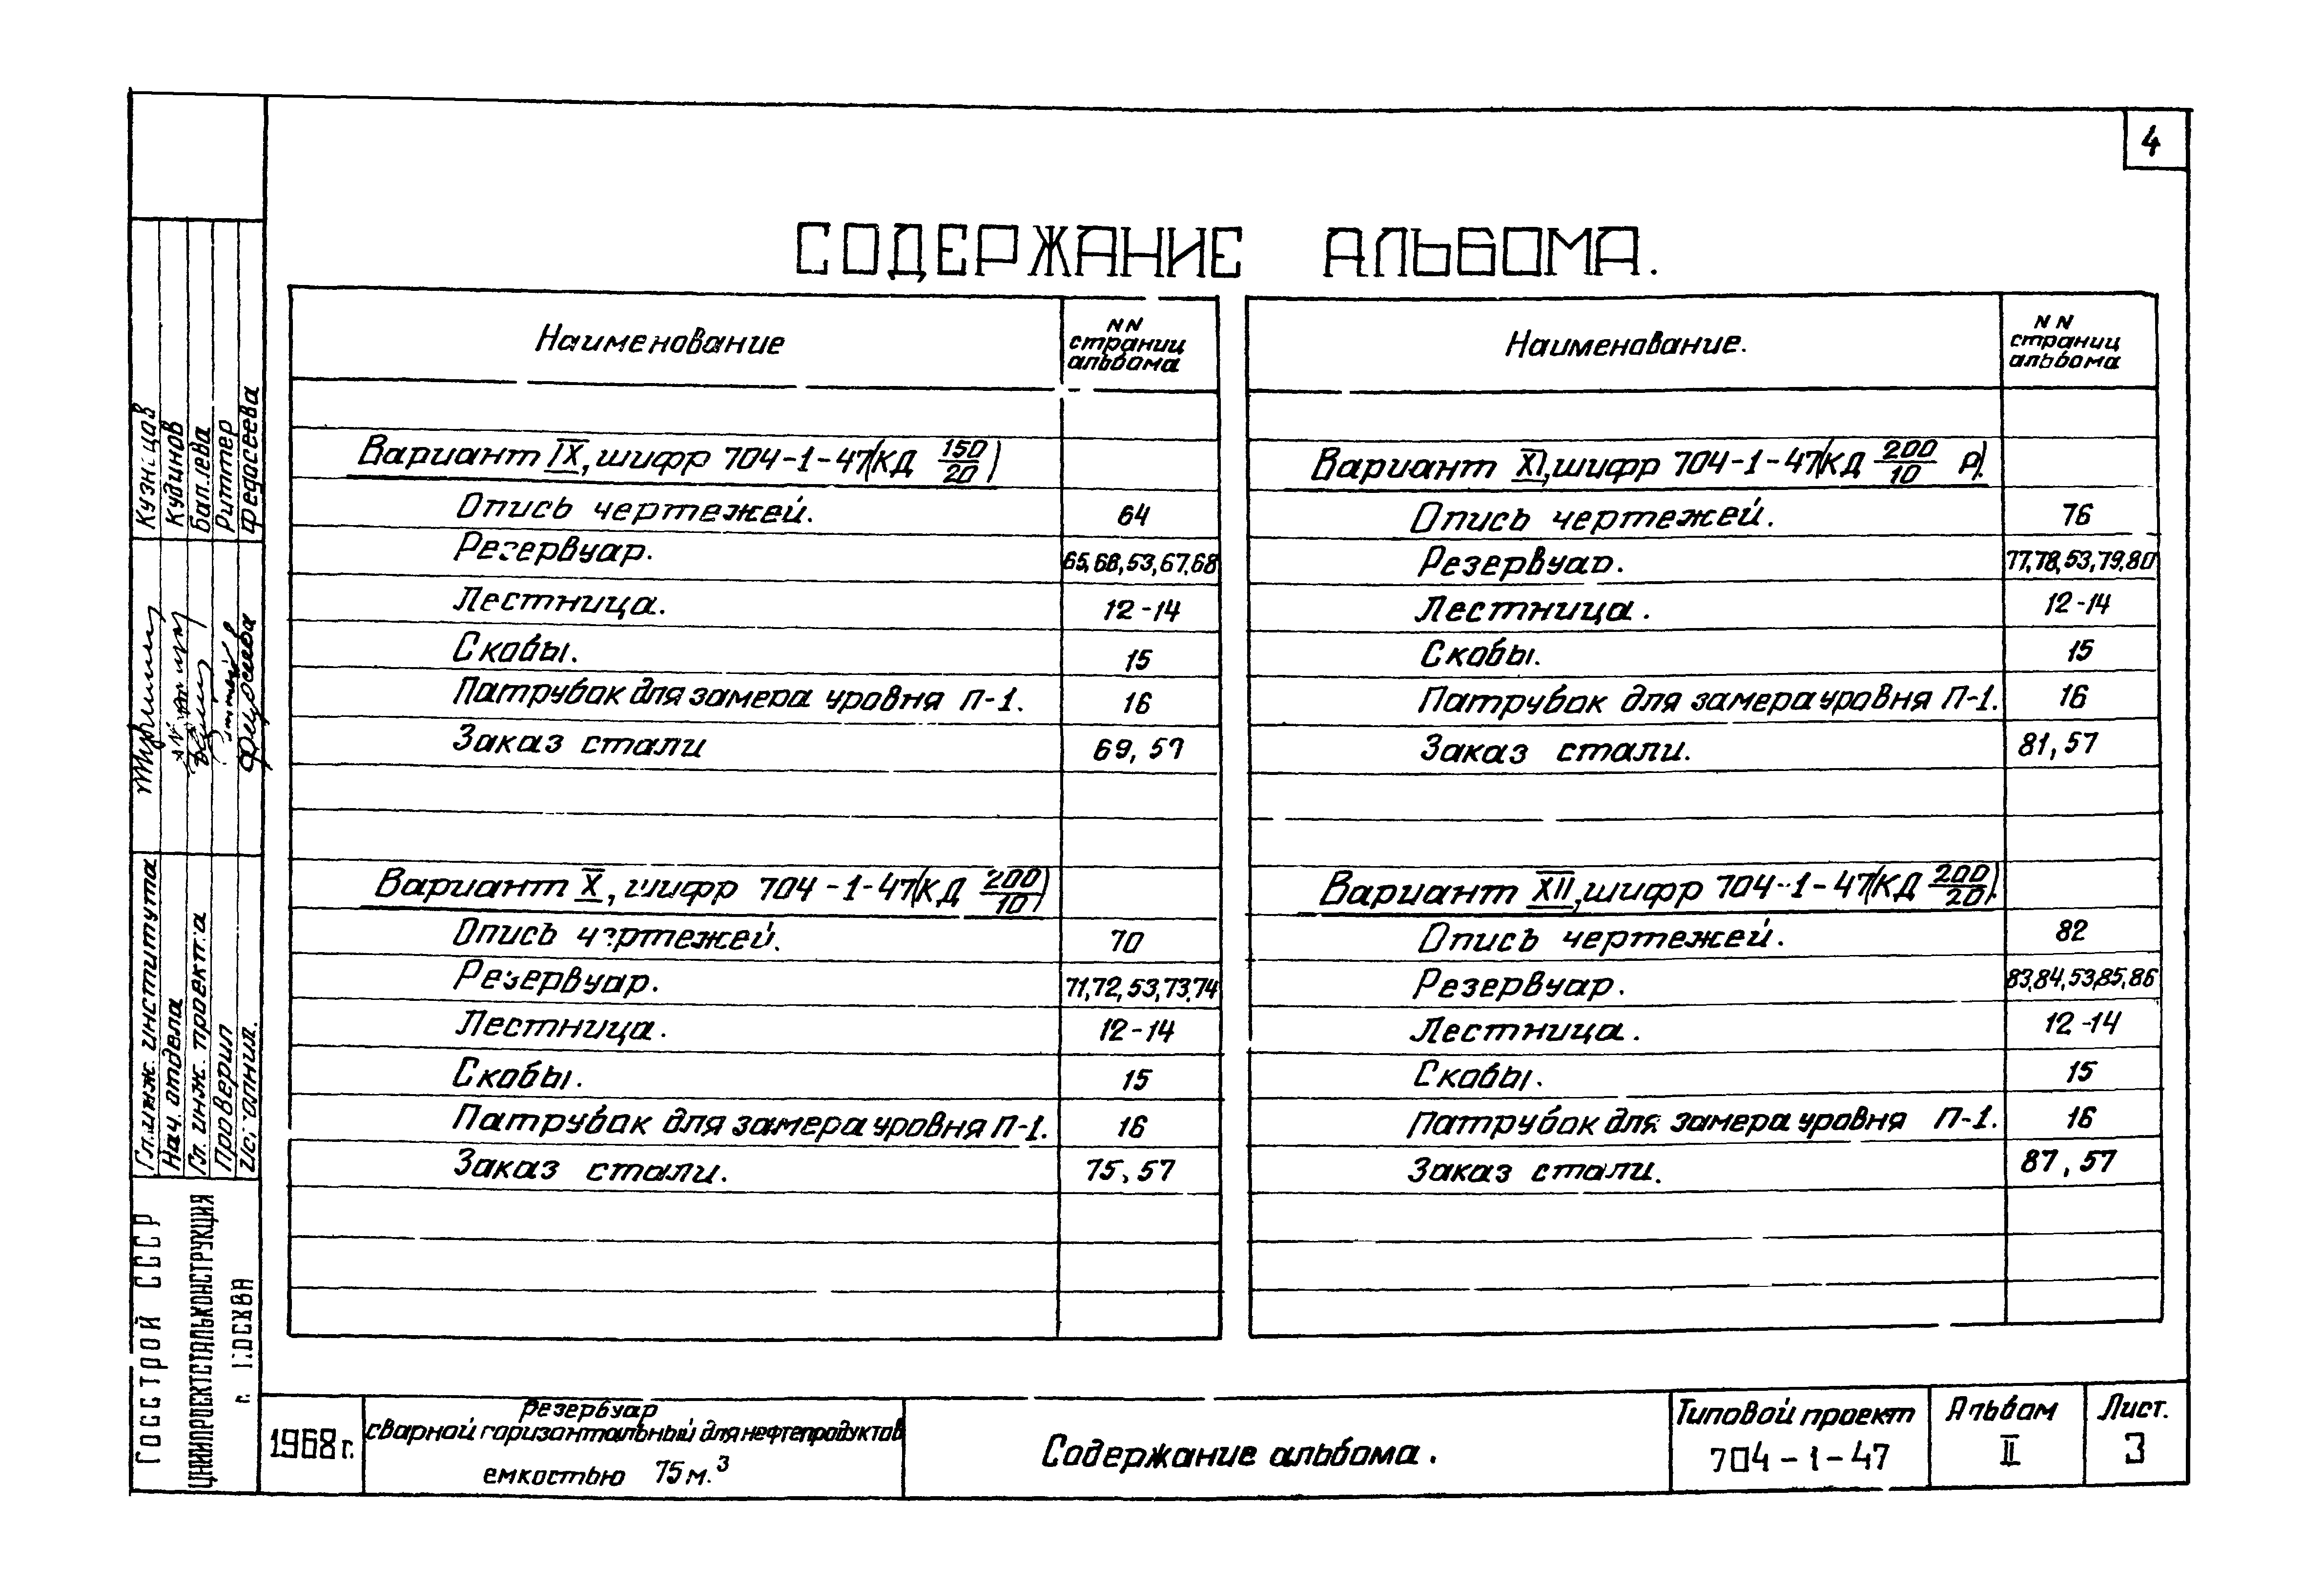 4
СОДЕРЖАНИЕ АЛЬБОМА.
Наименование
NN страниц альбома
Вариант IX, шифр 704-1-47(КД 150/20)
Опись чертежей. 64
Резервуар. 65,68,53,67,68
Лестница. 12-14
Скобы. 15
Патрубок для замера уровня П-1. 16
Заказ стали 69, 57
Вариант X, шифр 704-1-47(КД 200/10)
Опись чертежей. 70
Резервуар. 71,72,53,73,74
Лестница. 12-14
Скобы. 15
Патрубок для замера уровня П-1. 16
Заказ стали. 75, 57
Наименование.
NN страниц альбома
Вариант XI, шифр 704-1-47(КД 200/10 Р).
Опись чертежей. 76
Резервуар. 77,78,53,79,80
Лестница. 12-14
Скобы. 15
Патрубок для замера уровня П-1. 16
Заказ стали. 81, 57
Вариант XII, шифр 704-1-47(КД 200/20).
Опись чертежей. 82
Резервуар. 83,84,53,85,86
Лестница. 12-14
Скобы. 15
Патрубок для замера уровня П-1. 16
Заказ стали. 87, 57
Гл. инж. института Кузнецов
Нач. отдела Кудинов
Гл. инж. проекта
Проверил Риттер
Исполнил. Федосеева
ГОССТРОЙ СССР
ЦНИИПРОЕКТСТАЛЬКОНСТРУКЦИЯ
г. МОСКВА
1968 г.
Резервуар
сварной горизонтальный для нефтепродуктов
емкостью 75 м.³
Содержание альбома.
Типовой проект
704-1-47
Альбом
II
Лист.
3